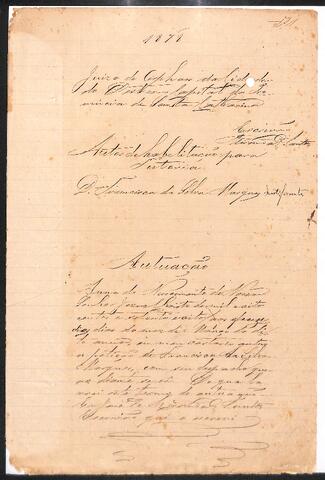 1878
Juizo de Orphãos da Cidade
do Desterro Capital da Pro
vincia de Santa Catharina
Escrivão
Autos de habilitação para
tutoria
D. Francisca da Silva Marques
Autuação
Anno do Nascimento de Nosso
Senhor Jesus Christo de mil oito
centos e setenta e oito, aos
dias do mez de Março do di
to anno, em meu cartorio autuo
a petição de Francisca da Silva
Marques, com seu despacho que
ao diante se vê. Do que la
vrei este termo de autuação.
Eu José de Miranda Santos
Escrivão que o escrevi